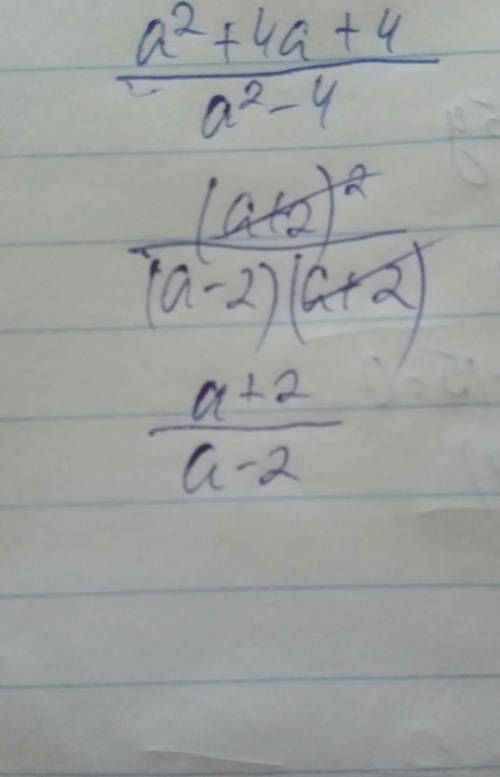 a² + 4a + 4
a² - 4
(a+2)²
(a-2)(a+2)
a+2
a-2